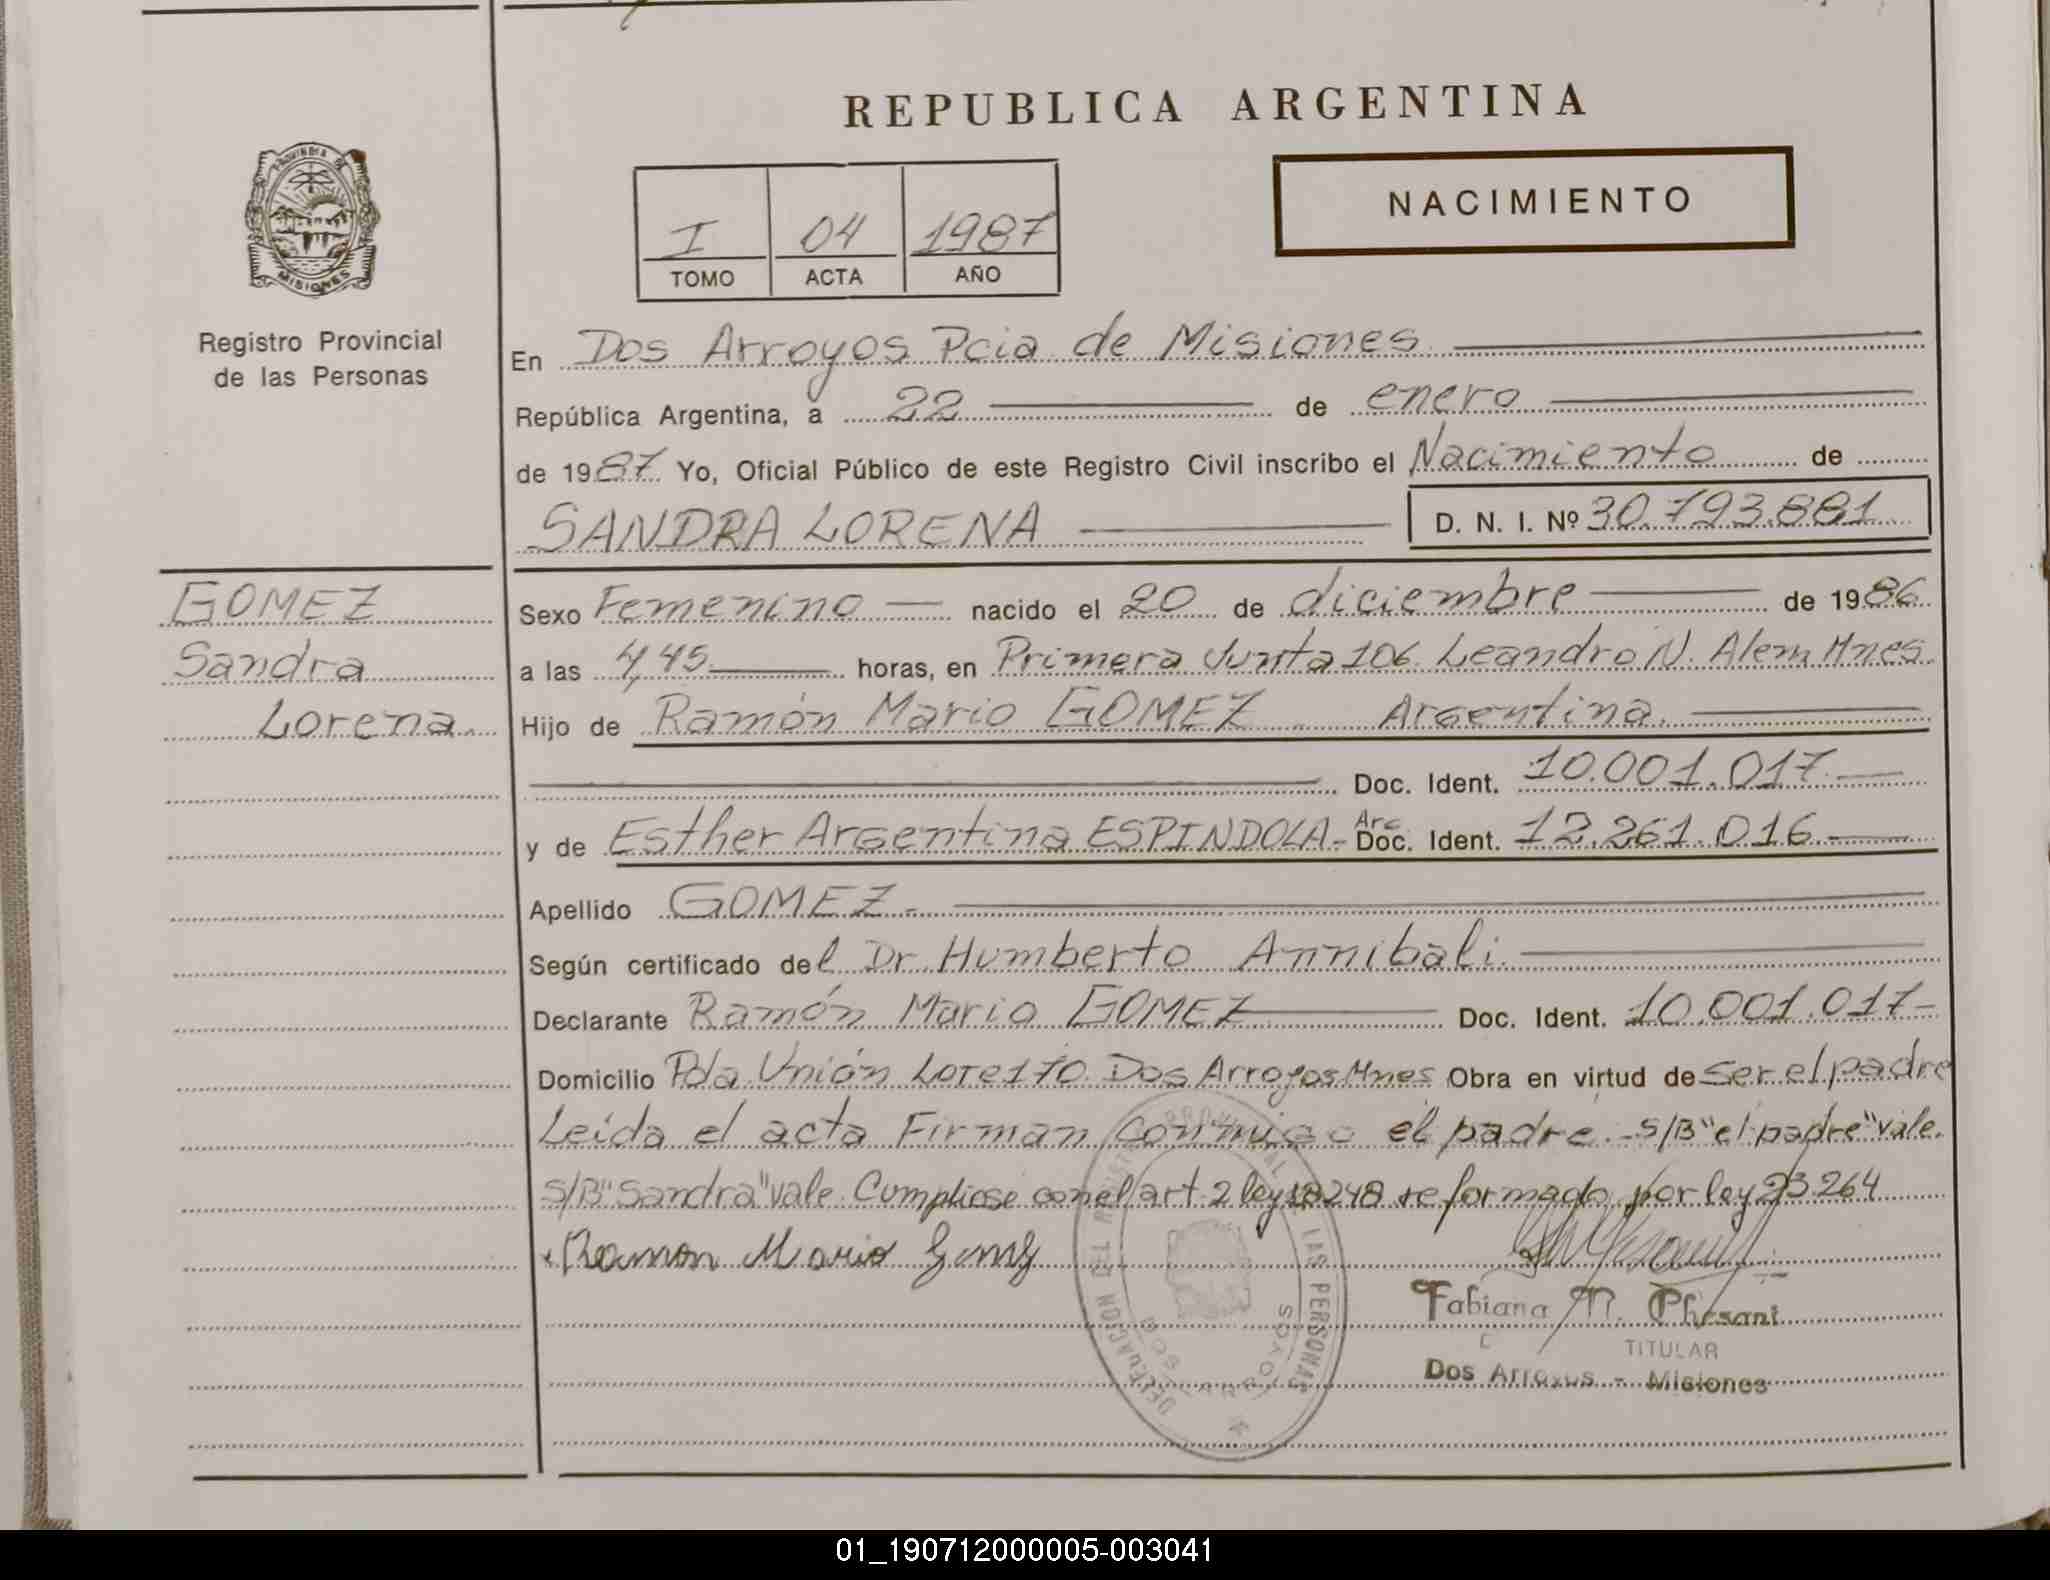 REPUBLICA ARGENTINA
PROVINCIA DE
MISIONES
Registro Provincial
de las Personas
NACIMIENTO
I 04 1987
TOMO ACTA AÑO
En Dos Arroyos Pcia de Misiones
República Argentina, a 22 de enero
de 1987 Yo, Oficial Público de este Registro Civil inscribo el Nacimiento de
SANDRA LORENA D. N. I. Nº 30.793.881
GOMEZ
Sandra
Lorena.
Sexo Femenino nacido el 20 de diciembre de 1986
a las 4,45 horas, en Primera Junta 106 Leandro N. Alem Mnes
Hijo de Ramón Mario GOMEZ Argentina.
Doc. Ident. 10.001.017
y de Esther Argentina ESPINDOLA - Arg Doc. Ident. 12.261.016
Apellido GOMEZ.
Según certificado del Dr Humberto Annibali.
Declarante Ramón Mario GOMEZ Doc. Ident. 10.001.017
Domicilio Pda Unión Loreto Dos Arroyos Mnes Obra en virtud de ser el padre
Leída el acta Firman conmigo el padre. S/B "el padre" vale.
S/B "Sandra" vale. Cumpliose con el art 2 ley 18248 reformado por ley 23264
Ramon Mario Gomez
DELEGACION DEL REGISTRO PROVINCIAL DE LAS PERSONAS
DOS ARROYOS
Fabiana M. Phesani
TITULAR
Dos Arroyos - Misiones
01_190712000005-003041